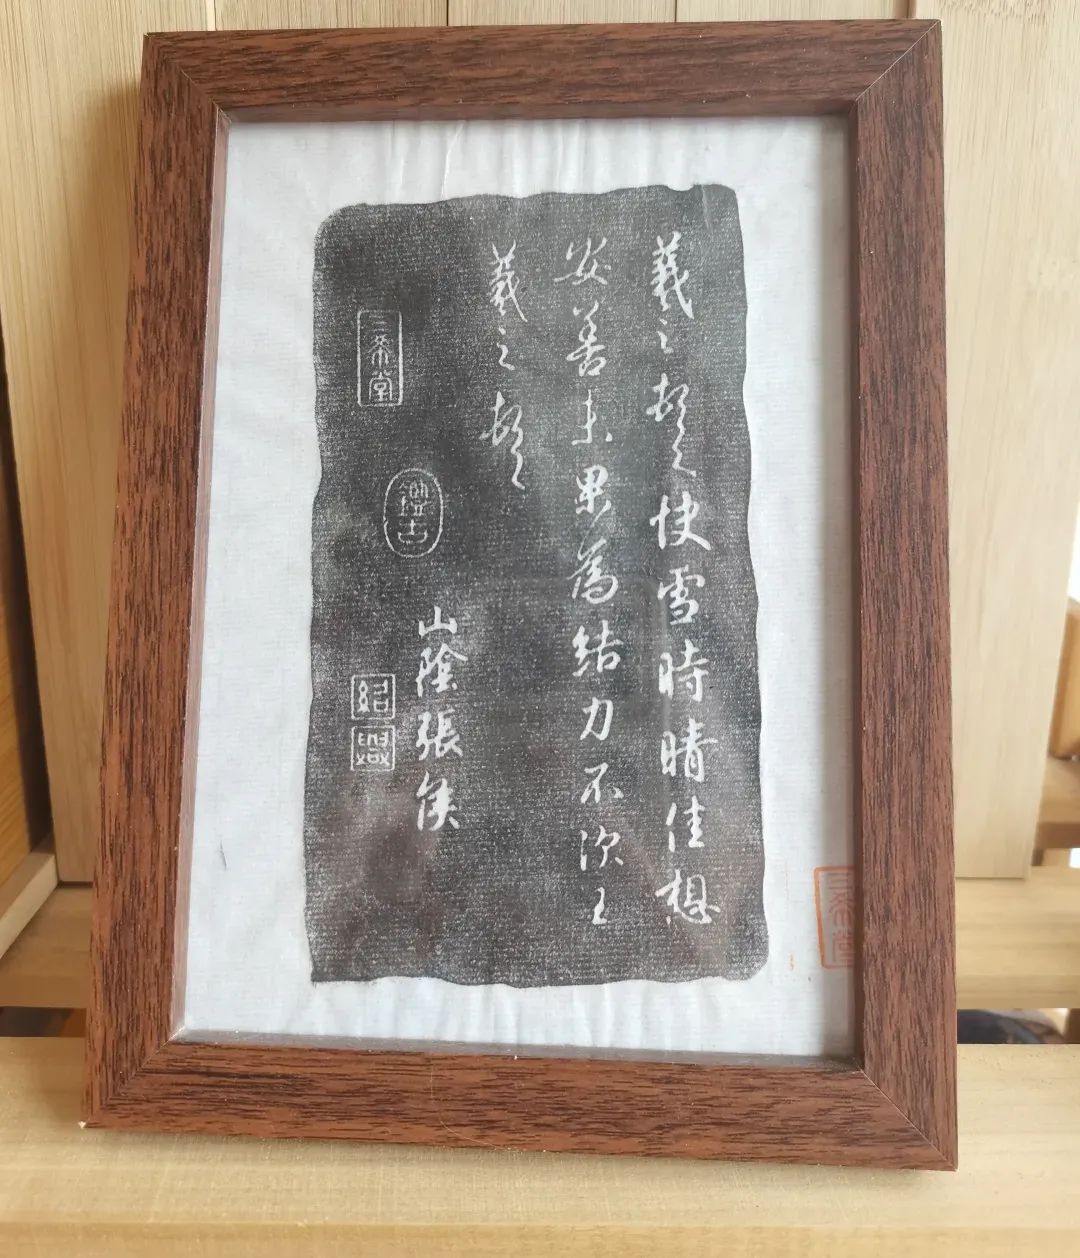 羲之頓首快雪時晴佳想
安善未果為結力不次王
羲之頓首
山陰張侯
三希堂
鑑古
紹興
三希堂